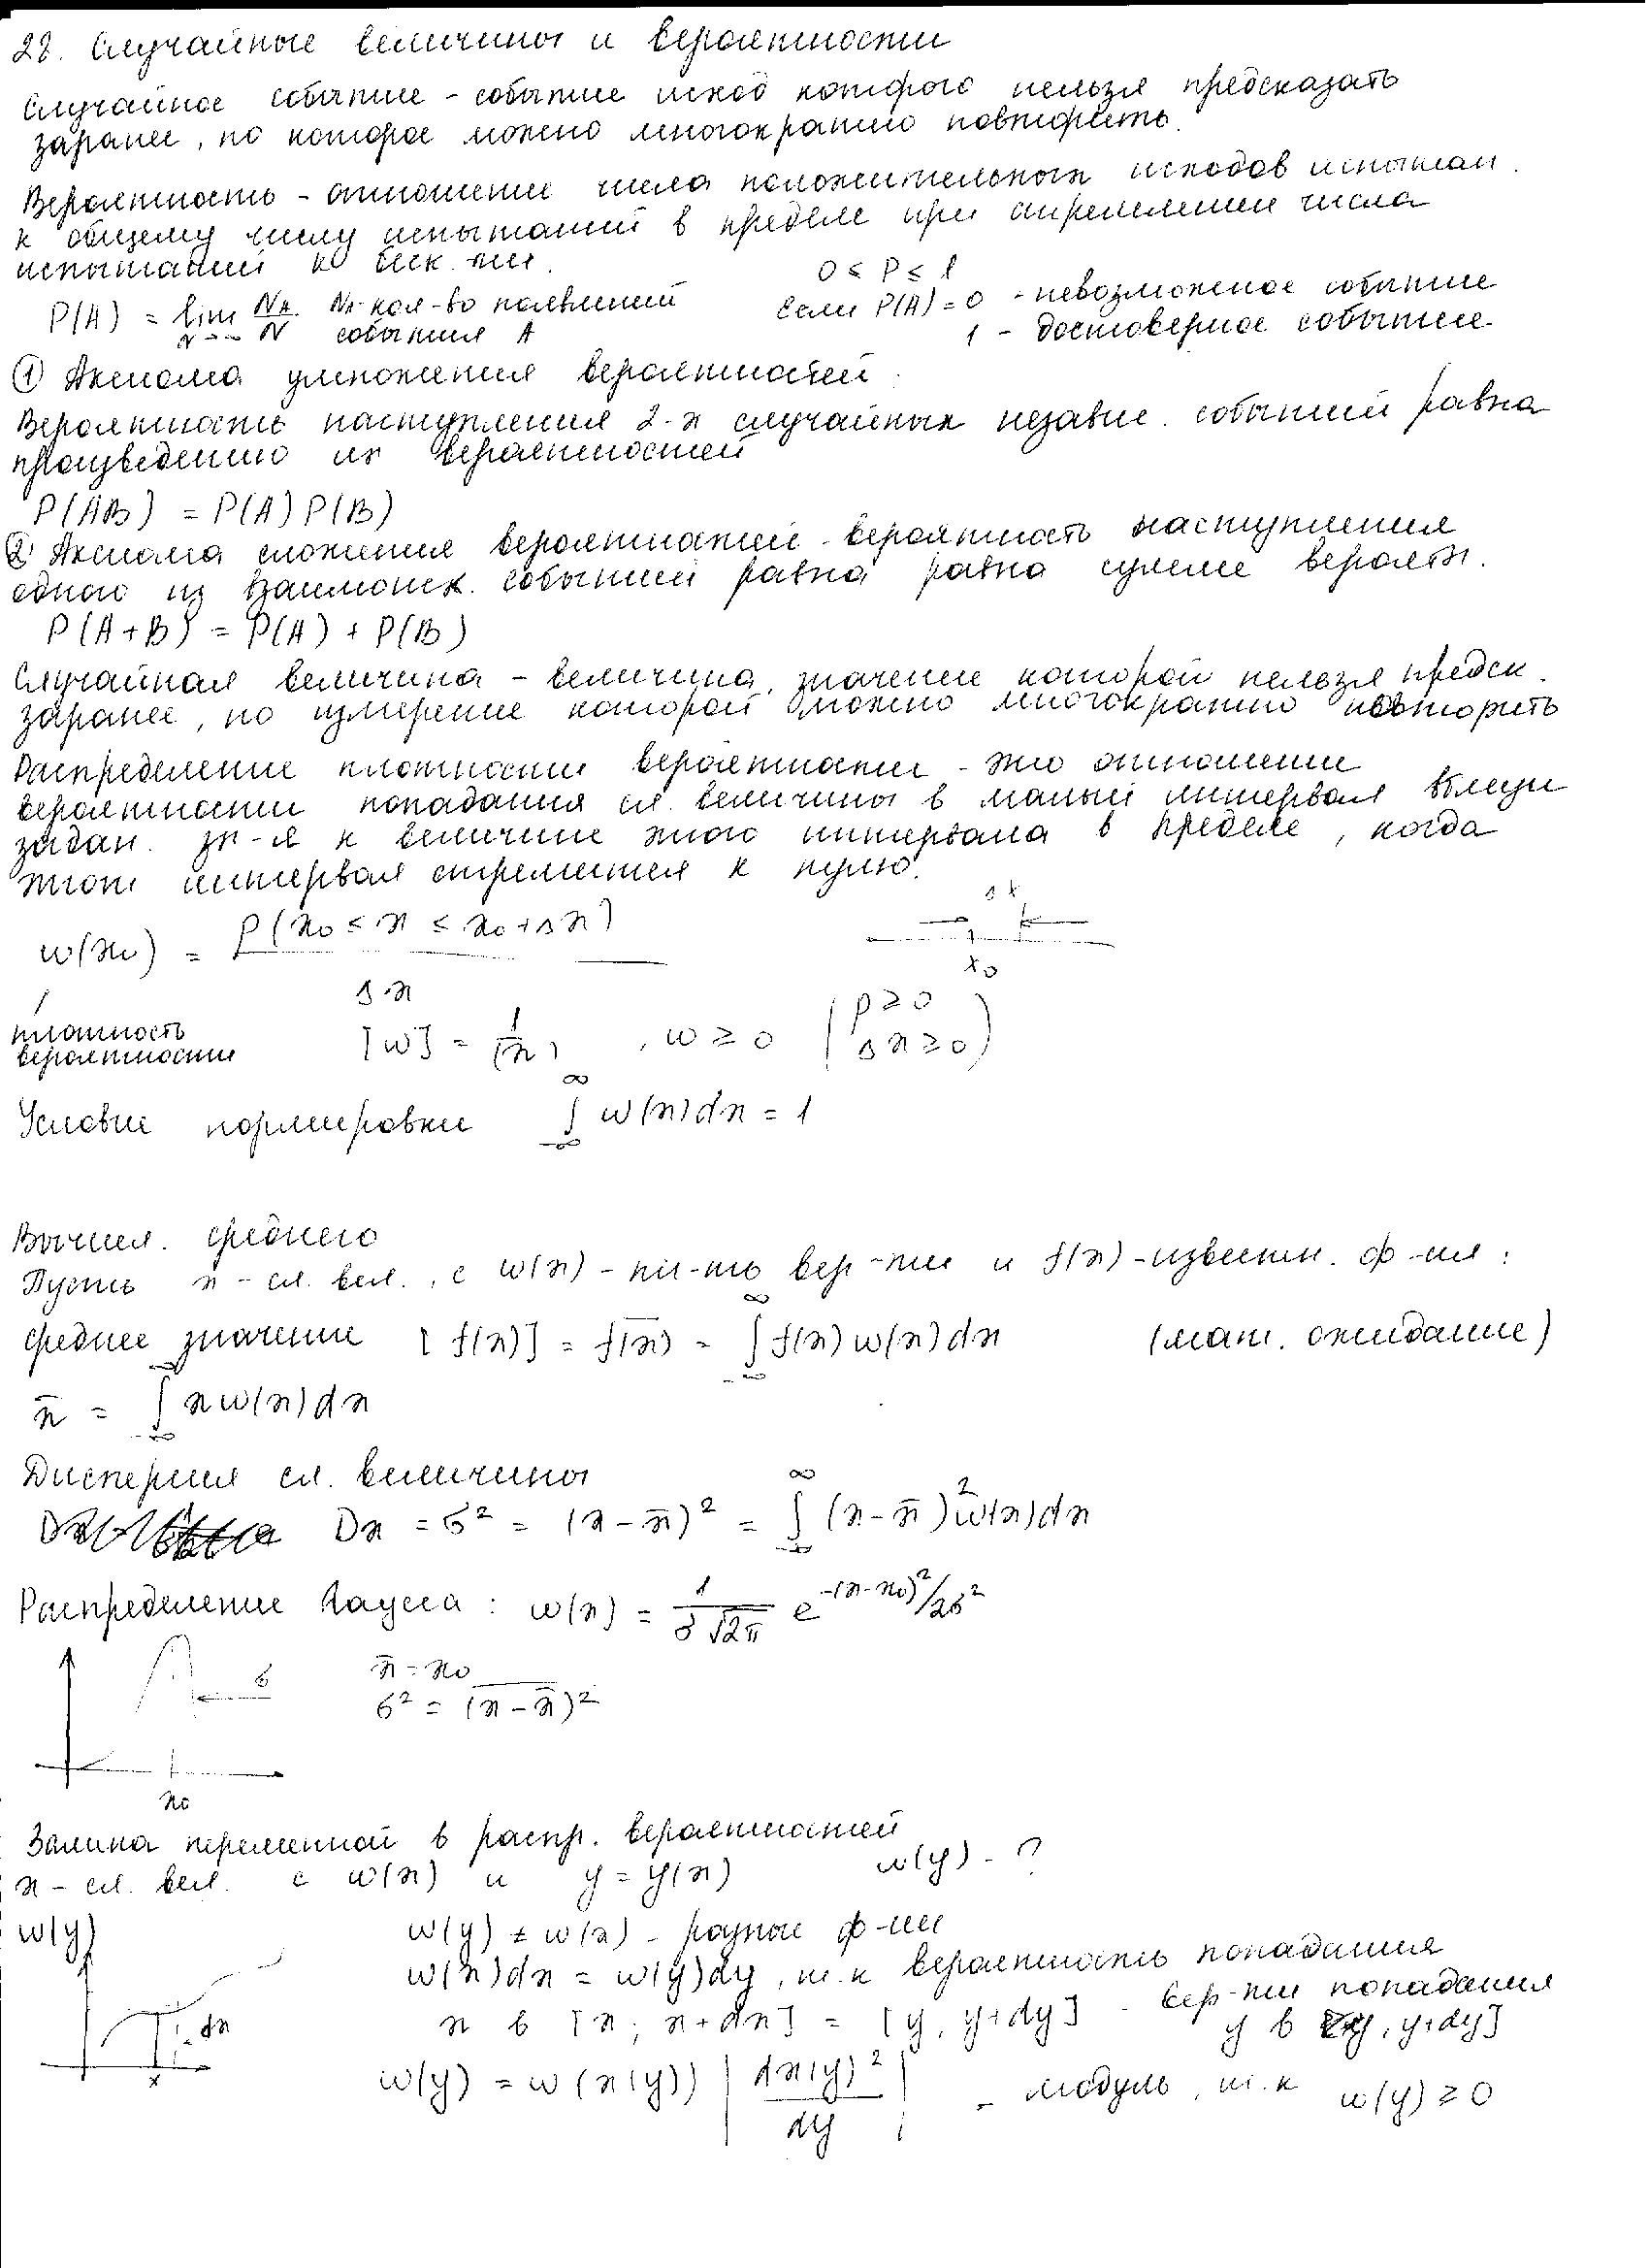 28. Случайные величины и вероятности
Случайное событие - событие исход которого нельзя предсказать
заранее, но которое можно многократно повторить.
Вероятность - отношение числа положительных исходов испытан.
к общему числу испытаний в пределе при стремлении числа
испытаний к беск-ти.
0 ≤ P ≤ 1
P(A) = lim N→∞ N_A/N N_A - кол-во появлений
события A
если P(A) = 0 - невозможное событие
1 - достоверное событие.
① Аксиома умножения вероятностей.
Вероятность наступления 2-х случайных независ. событий равна
произведению их вероятностей
P(AB) = P(A) P(B)
② Аксиома сложения вероятностей - вероятность наступления
одного из взаимоиск. событий равна равна сумме вероятн.
P(A+B) = P(A) + P(B)
Случайная величина - величина, значение которой нельзя предск.
заранее, но измерение которой можно многократно повторить
Распределение плотности вероятности - это отношение
вероятности попадания сл. величины в малый интервал вблизи
задан. зн-я к величине этого интервала в пределе, когда
этот интервал стремится к нулю.
w(x₀) = P(x₀ ≤ x ≤ x₀+Δx) / Δx
Δx
x₀
плотность
вероятности
[w] = 1/[x] , w ≥ 0 (p ≥ 0
Δx ≥ 0)
Условие нормировки ∫_{-∞}^{∞} w(x)dx = 1
Вычисл. среднего
Пусть x - сл. вел., с w(x) - пл-ть вер-ти и f(x) - известн. ф-ия:
среднее значение [f(x)] = f(x)‾ = ∫_{-∞}^{∞} f(x) w(x) dx (мат. ожидание)
x̄ = ∫_{-∞} x w(x) dx
Дисперсия сл. величины
Dx = σ² = (x - x̄)² = ∫_{-∞}^{∞} (x - x̄)² w(x) dx
Распределение Гаусса: w(x) = 1/(σ√2π) e^{-(x-x₀)²/2σ²}
σ
x̄ = x₀
σ² = (x - x̄)²‾
x₀
Замена переменной в распр. вероятностей
x - сл. вел. с w(x) и y = y(x) w(y) - ?
w(y)
w(y) ≠ w(x) - разные ф-ии
w(x)dx = w(y)dy, т.к вероятность попадания
x в [x; x+dx] = [y, y+dy] - вер-ти попадания
y в [y, y+dy]
dx
x
w(y) = w(x(y)) |dx(y)²/dy| - модуль, т.к w(y) ≥ 0